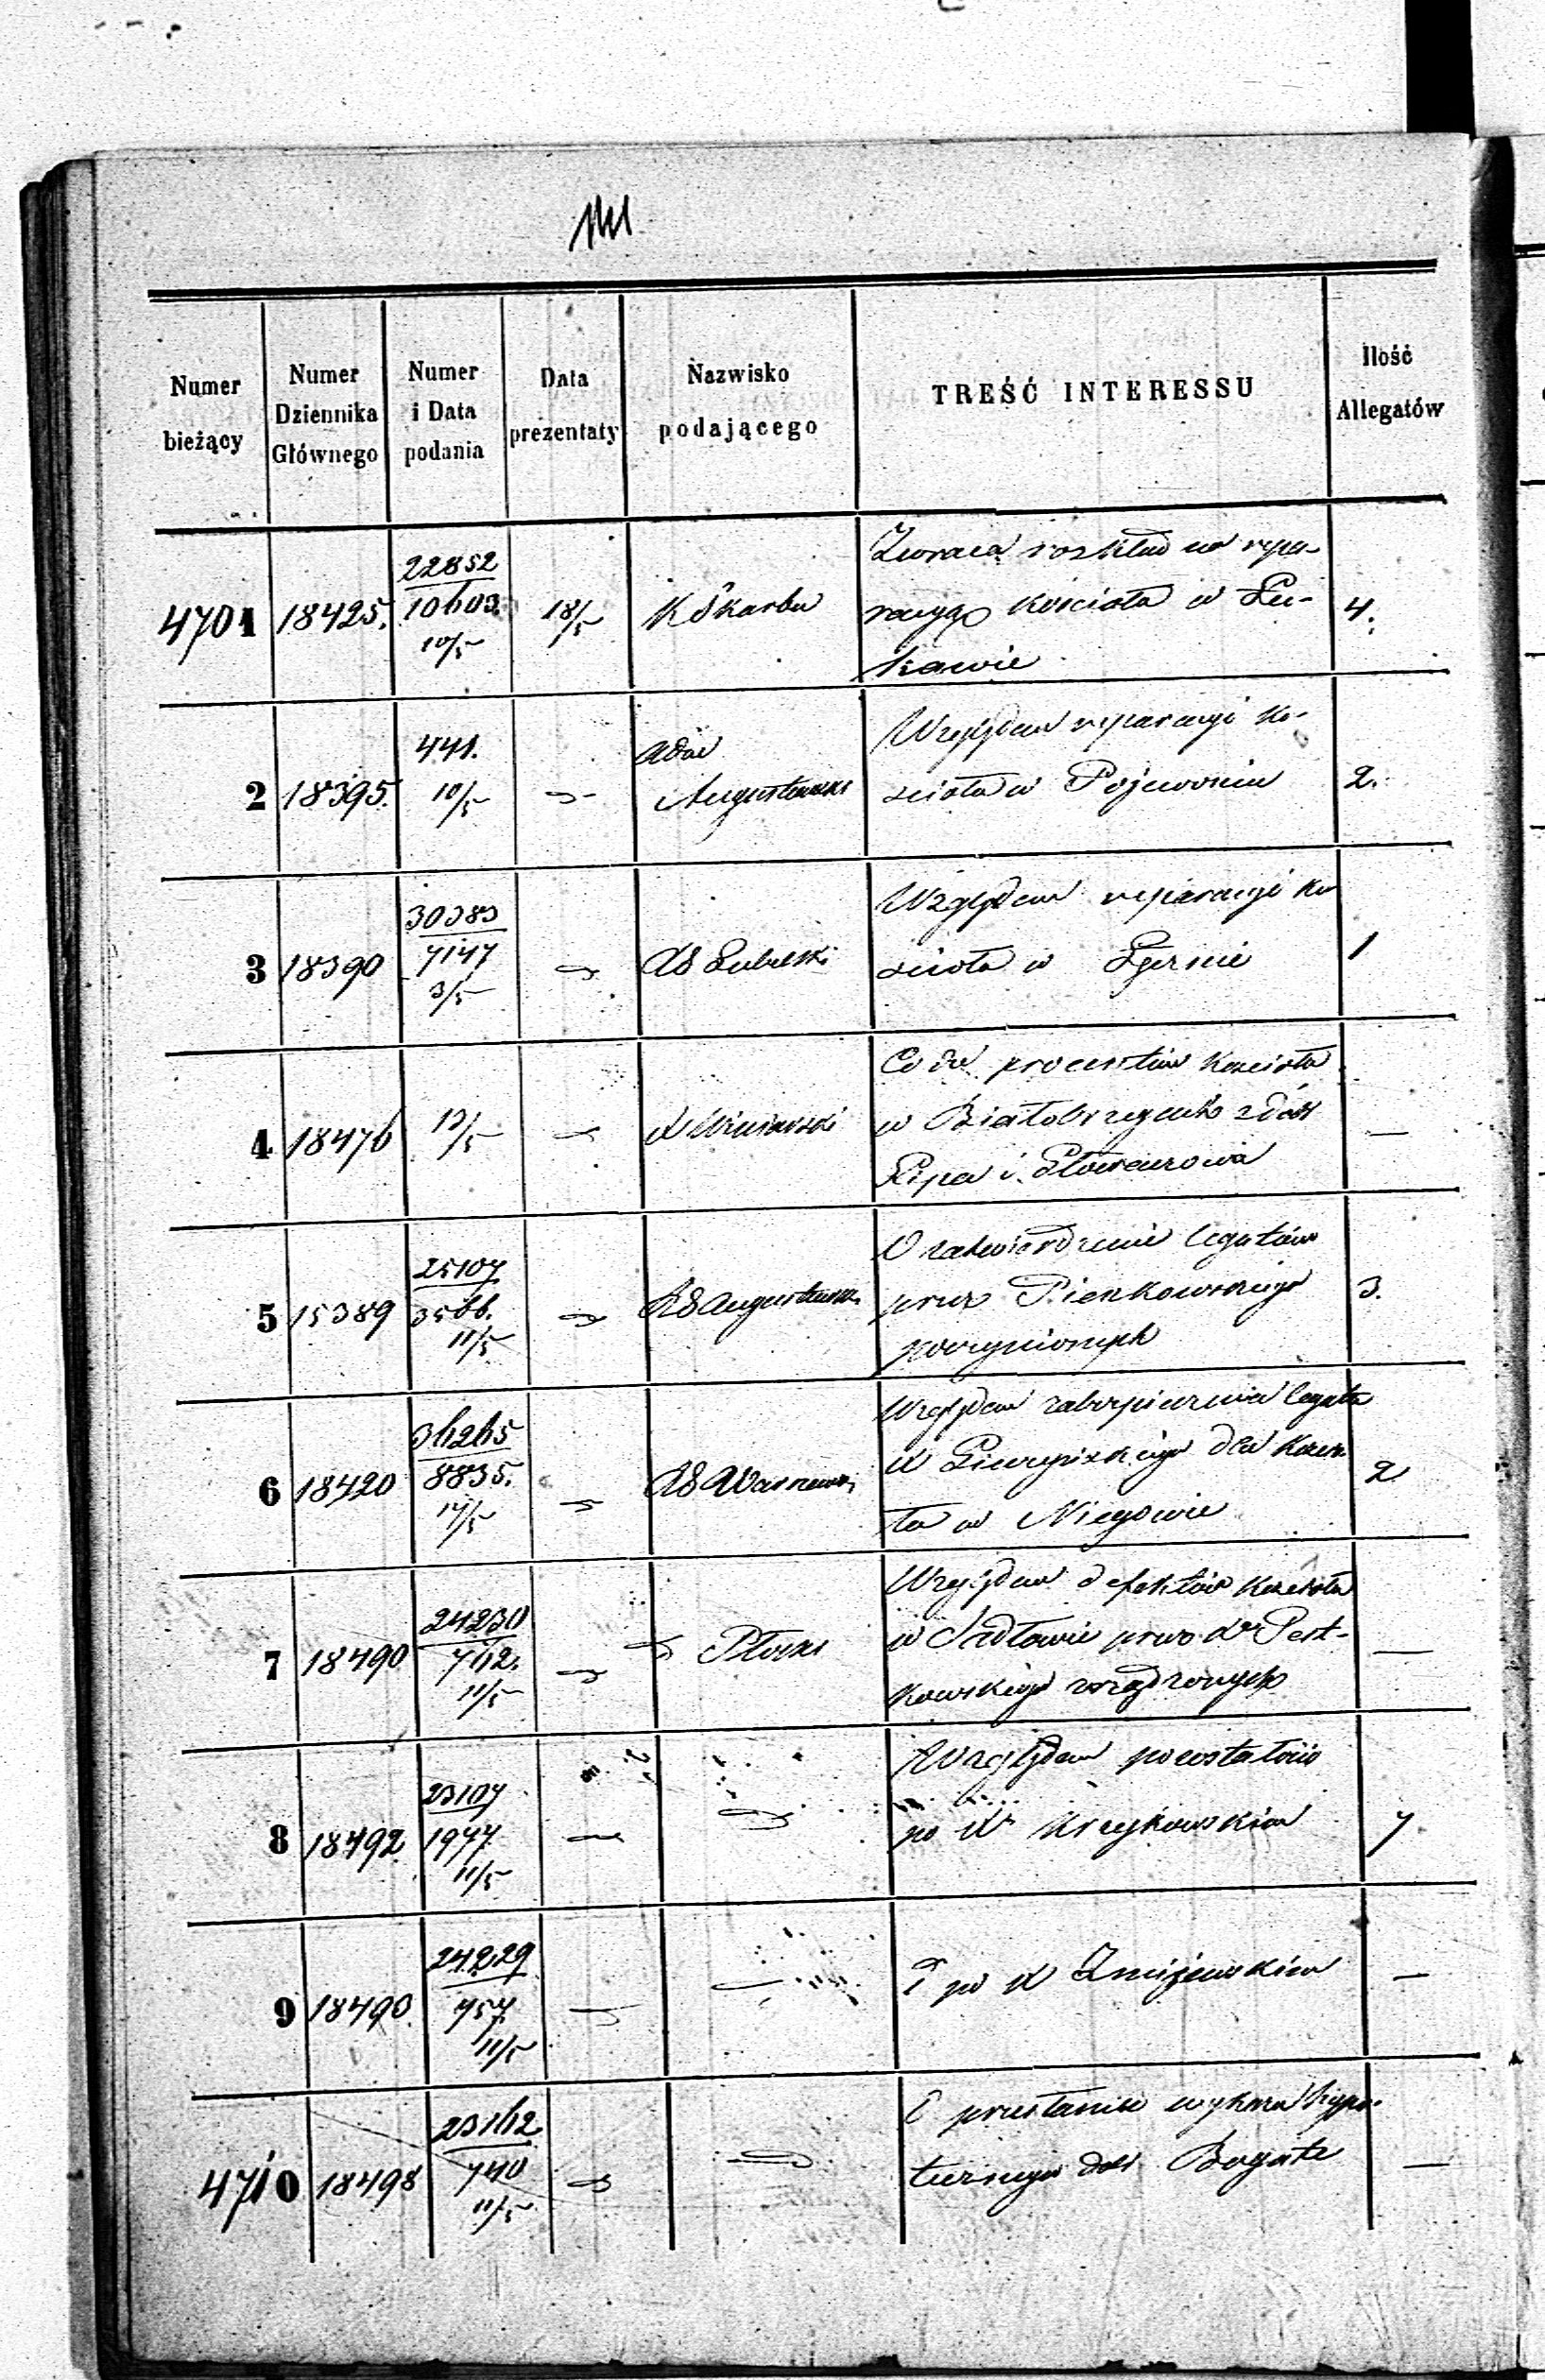 Numer
bieżący
Numer
Dziennika
Głównego
Numer
i Data
podania
Data
prezentaty
Nazwisko
podającego
TREŚĆ INTERESSU
Ilość
Allegatów
4701 18425.
22852
10603.
10/5
18/5
K Skarbu
Zwraca rozkład na repa-
racyą kościoła w Łu-
kawie
4.
2 18395.
441.
10/5
Adm
Augustowski
Względem reparacyi ko-
ścioła w Pojewoniu
2.
3 18390
30383
7147
3/5
RG Lubelski
Względem reparacyi ko
ścioła w
1
4 18476
13/5
X Winiarski
Co do procentów kościoła
w Białobrzegach z dóbr
Lipa i
—
5 15389
25107
3566.
11/5
RG Augustowski
O zatwierdzenie legatów
przez Pienkowskiego
poczynionych
3.
6 18420
36265
8835.
14/5
RG Warszaws
Względem zabezpieczenia legatu
X dla kościo
ła w Niegowie
2
7 18490
24230
762.
11/5
Płocki
Względem defektów kościoła
w Sadłowie przez Xa Pest-
kowskiego zrządzonych
—
8 18492
23107
1977
11/5
Względem pozostałości
po Xu Krzykowskim
7
9 18490.
24229
757.
11/5
D po X Zmijewskim
—
4710 18498
23162
740
11/5
O przesłanie wykazu hypo-
tecznego dóbr Bogate
—